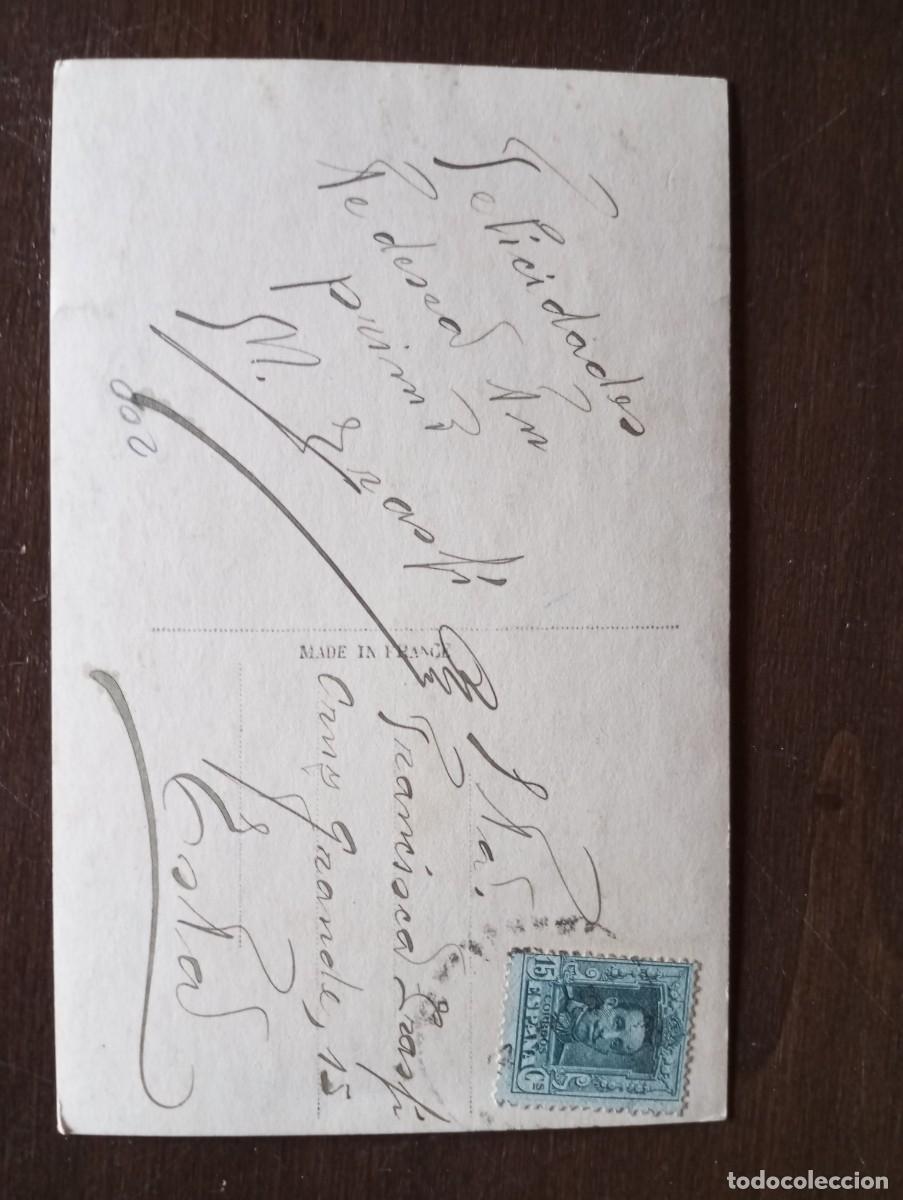 Felicidades
te desea tu
prima
M.
MADE IN FRANCE
Srta.
Francisca
Cruz Grande, 15
15 Cs
CORREOS
ESPAÑA
todocoleccion